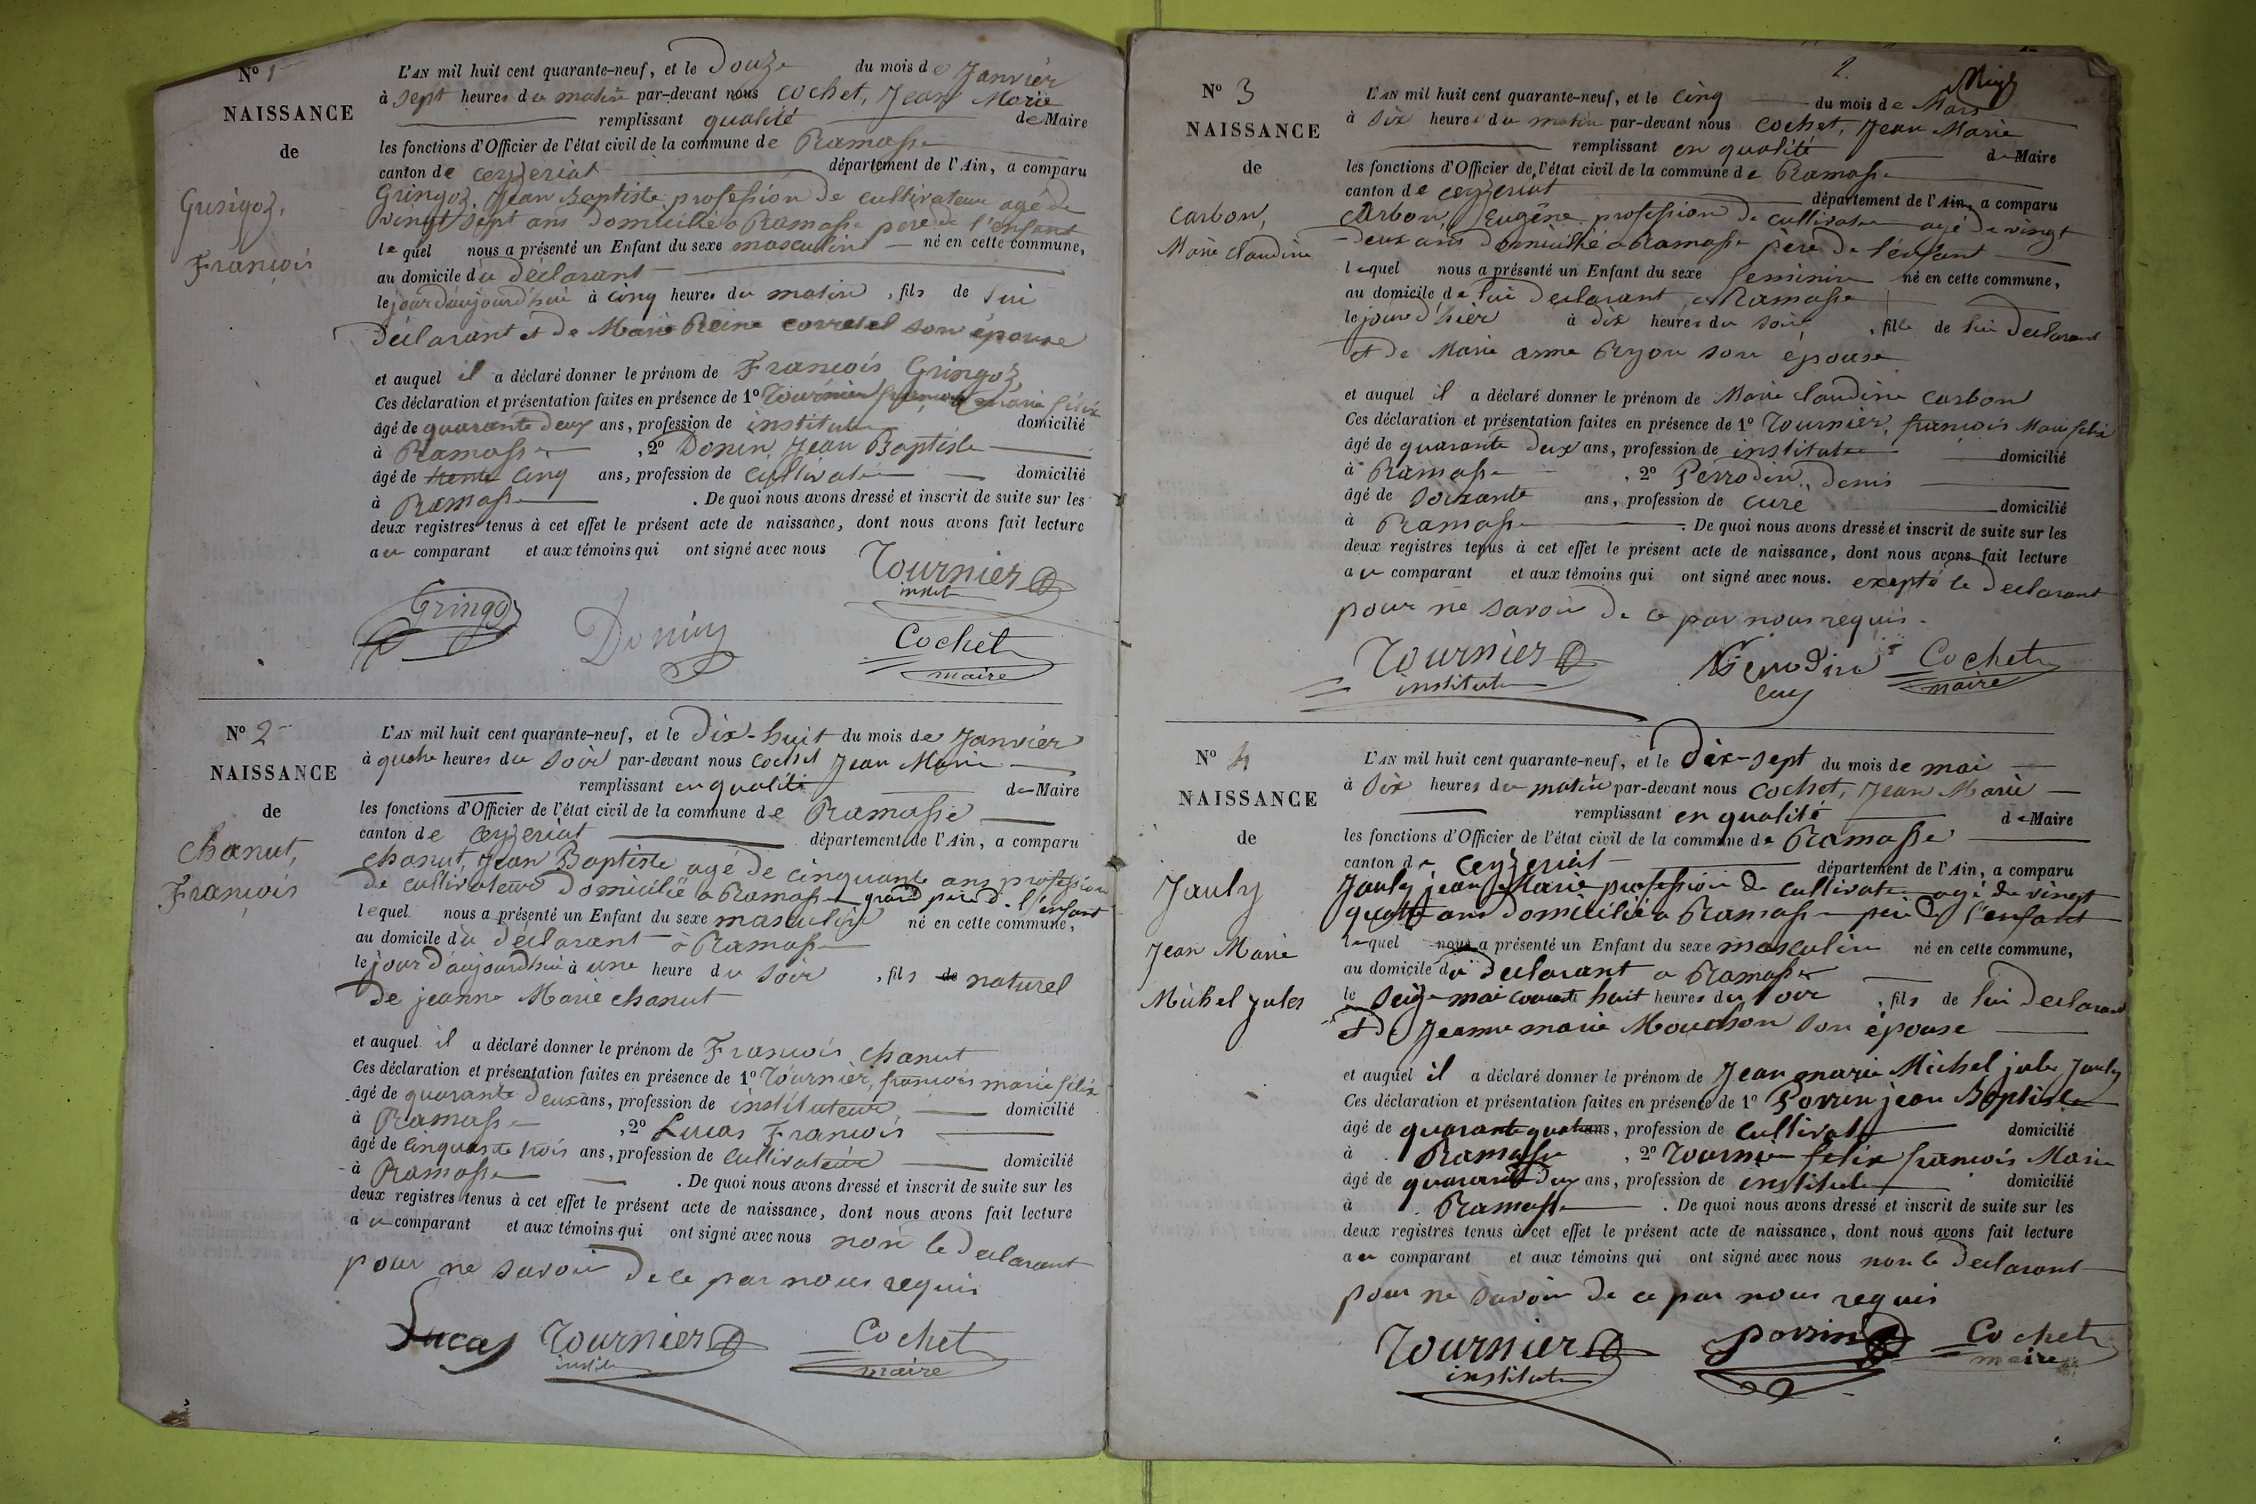 N° 1
NAISSANCE
de
Gringoz,
François
L'AN mil huit cent quarante-neuf, et le Douze du mois de Janvier
à sept heures du matin par-devant nous Cochet, Jean Marie
remplissant qualité de Maire
les fonctions d'Officier de l'état civil de la commune de Ramasse
canton de ceyzeriat département de l'Ain, a comparu
Gringoz, Jean Baptiste profession de cultivateur agé de
vingt sept ans domicilié a Ramasse père de l'enfant
lequel nous a présenté un Enfant du sexe masculin né en cette commune,
au domicile du déclarant
le jour d'aujourd'hui à cinq heures du matin, fils de lui
déclarant et de Marie Reine son épouse
et auquel il a déclaré donner le prénom de François Gringoz
Ces déclaration et présentation faites en présence de 1° Tournier françois marie félix
âgé de quarante deux ans, profession de instituteur domicilié
à Ramasse, 2° Donin, Jean Baptiste
âgé de trente cinq ans, profession de cultivateur domicilié
à Ramasse. De quoi nous avons dressé et inscrit de suite sur les
deux registres tenus à cet effet le présent acte de naissance, dont nous avons fait lecture
au comparant et aux témoins qui ont signé avec nous
Tournier
instit
Gringoz
Donin
Cochet
maire
N° 2
NAISSANCE
de
Chanut,
François
L'AN mil huit cent quarante-neuf, et le Dix-huit du mois de Janvier
à quatre heures du soir par-devant nous Cochet Jean Marie
remplissant en qualité de Maire
les fonctions d'Officier de l'état civil de la commune de Ramasse
canton de ceyzeriat département de l'Ain, a comparu
chanut, Jean Baptiste agé de cinquante ans profession
de cultivateur domicilié a Ramasse grand père de l'enfant
lequel nous a présenté un Enfant du sexe masculin né en cette commune,
au domicile du déclarant à Ramasse
le jour d'aujourd'hui à une heure du soir, fils de naturel
de jeanne Marie chanut
et auquel il a déclaré donner le prénom de François chanut
Ces déclaration et présentation faites en présence de 1° Tournier, françois marie félix
âgé de quarante deux ans, profession de instituteur, domicilié
à Ramasse, 2° Lucas François
âgé de cinquante trois ans, profession de cultivateur domicilié
à Ramasse. De quoi nous avons dressé et inscrit de suite sur les
deux registres tenus à cet effet le présent acte de naissance, dont nous avons fait lecture
au comparant et aux témoins qui ont signé avec nous non le declarant
pour ne savoir de ce par nous requis
Lucas Tournier Cochet
instit maire
2.
N° 3
NAISSANCE
de
Carbon,
Marie claudine
L'AN mil huit cent quarante-neuf, et le cinq du mois de Mars
à six heures du matin par-devant nous Cochet, Jean Marie
remplissant en qualité de Maire
les fonctions d'Officier de l'état civil de la commune de Ramasse
canton de ceyzeriat département de l'Ain, a comparu
Carbon Eugène profession de cultivateur agé de vingt
deux ans domicilié a Ramasse père de l'enfant
lequel nous a présenté un Enfant du sexe feminin né en cette commune,
au domicile de lui declarant, a Ramasse
le jour d'hier à dix heures du soir, fille de lui declarant
et de Marie anne son épouse
et auquel il a déclaré donner le prénom de Marie claudine Carbon
Ces déclaration et présentation faites en présence de 1° Tournier, françois Marie felix
âgé de quarante deux ans, profession de instituteur domicilié
à Ramasse, 2° Perrodin, denis
âgé de soixante ans, profession de curé domicilié
à Ramasse. De quoi nous avons dressé et inscrit de suite sur les
deux registres tenus à cet effet le présent acte de naissance, dont nous avons fait lecture
au comparant et aux témoins qui ont signé avec nous. excepté le declarant
pour ne savoir de ce par nous requis.
Tournier Perrodin Cochet
institut curé maire
N° 4
NAISSANCE
de
Jauly
Jean Marie
Michel Jules
L'AN mil huit cent quarante-neuf, et le dix-sept du mois de mai
à six heures du matin par-devant nous Cochet, Jean Marie
remplissant en qualité de Maire
les fonctions d'Officier de l'état civil de la commune de Ramasse
canton de ceyzeriat département de l'Ain, a comparu
Jauly jean Marie profession de cultivateur agé de vingt
quatre ans domicilié a Ramasse père de l'enfant
lequel nous a présenté un Enfant du sexe masculin né en cette commune,
au domicile du declarant a Ramasse
le seize mai courant huit heures du soir, fils de lui declarant
et de Jeanne marie Mouchon son épouse
et auquel il a déclaré donner le prénom de Jean marie Michel jules Jauly
Ces déclaration et présentation faites en présence de 1° Porrin jean Baptiste
âgé de quarante quatre ans, profession de cultivateur domicilié
à Ramasse, 2° Tournier felix françois Marie
âgé de quarante deux ans, profession de instituteur domicilié
à Ramasse. De quoi nous avons dressé et inscrit de suite sur les
deux registres tenus à cet effet le présent acte de naissance, dont nous avons fait lecture
au comparant et aux témoins qui ont signé avec nous non le declarant
pour ne savoir de ce par nous requis
Tournier porrin Cochet
institut maire